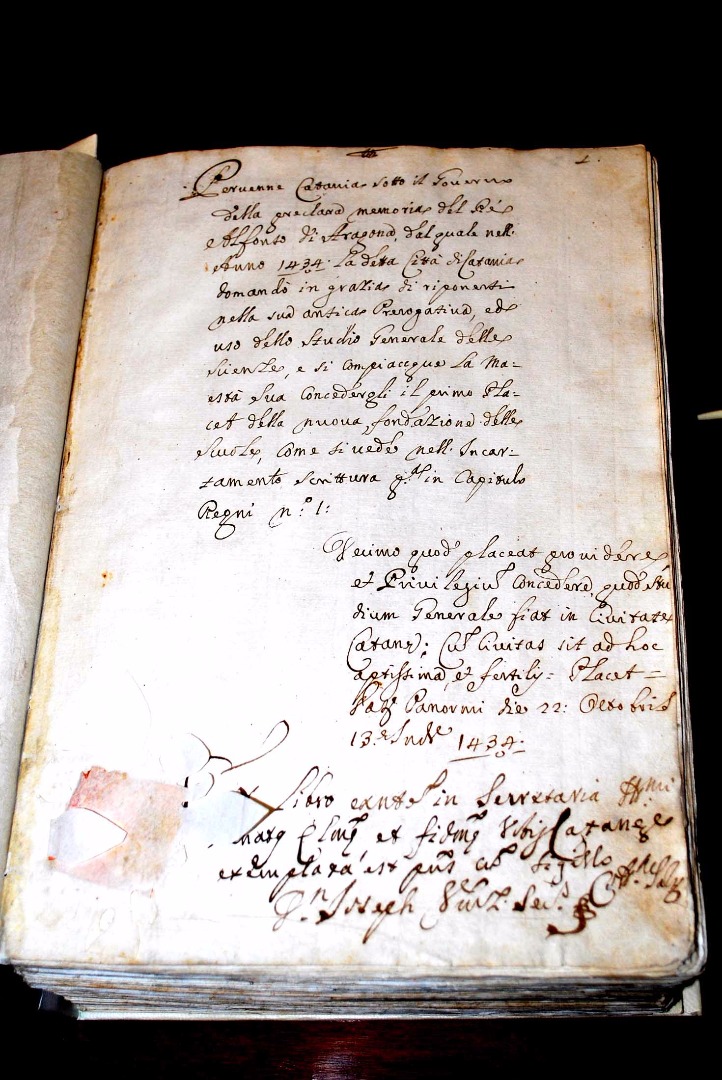 1.
Pervenne Catania sotto il Governo
della preclara memoria del Ré
Alfonso di Aragona, dal quale nell'
Anno 1434. La detta Città di Catania
domandò in grazia di riponersi
nella sua antica Prerogativa, ed
uso dello Studio Generale delle
Scienze, e si compiacque La Ma=
està Sua Concedergli il primo Pla=
cet della nuova fondazione delle
Scuole, Come si vede nell' Incar=
tamento Scrittura in Capitulo
Regni n.º 1:
quod placeat providere
et Privilegiu Concedere, quod Stu
dium Generale fiat in Civitate
Catane; Civitas sit ad hoc
aptissima, et fertilis: Placet=
Panormi die 22: Octobris
13.e Ind. 1434.
Libro in Secretaria
et Catane
exemplata est
Joseph Sec.s